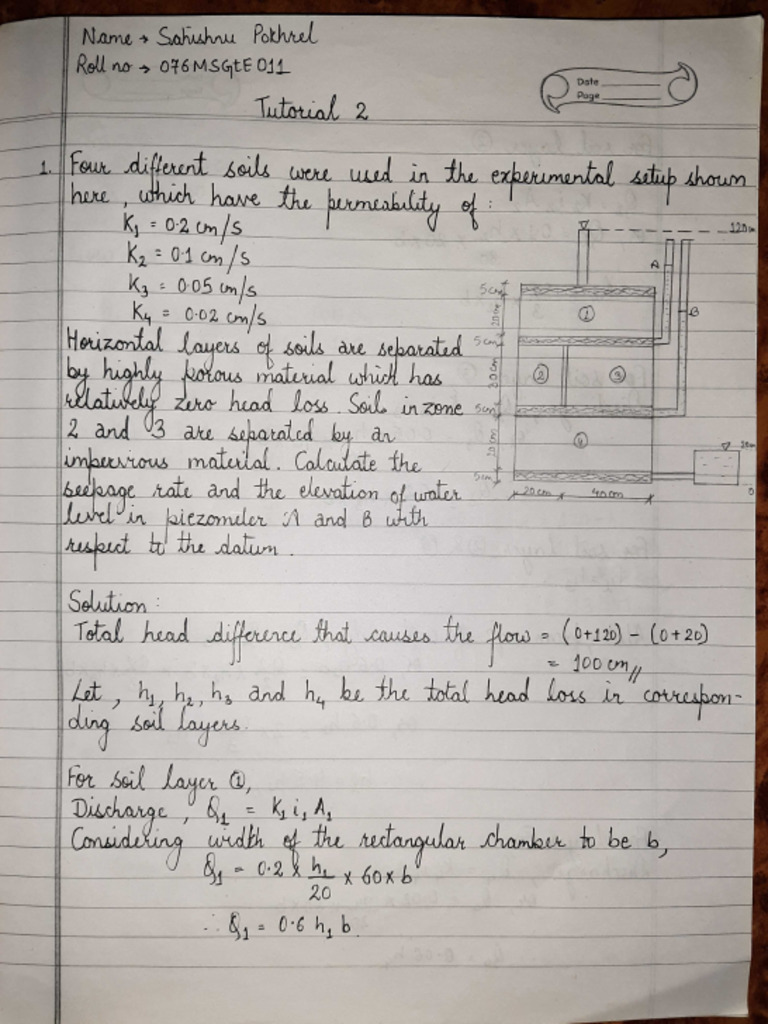 Name → Satishnu Pokhrel
Roll no → 076MSGtE011
Date
Page
Tutorial 2
1. Four different soils were used in the experimental setup shown
here, which have the permeability of :
K₁ = 0.2 cm/s
K₂ = 0.1 cm/s
K₃ = 0.05 cm/s
K₄ = 0.02 cm/s
120cm
A
B
5cm
20cm
5cm
20cm
5cm
20cm
5cm
①
②
③
④
20cm
40cm
20cm
0
Horizontal layers of soils are separated
by highly porous material which has
relatively zero head loss. Soil in zone
2 and 3 are separated by an
impervious material. Calculate the
seepage rate and the elevation of water
level in piezometer A and B with
respect to the datum.
Solution :
Total head difference that causes the flow = (0+120) - (0+20)
= 100 cm//
Let, h₁, h₂, h₃ and h₄ be the total head loss in correspon-
ding soil layers.
For soil layer ①,
Discharge, Q₁ = K₁ i₁ A₁
Considering width of the rectangular chamber to be b,
Q₁ = 0.2 × h₁/20 × 60 × b
∴ Q₁ = 0.6 h₁ b